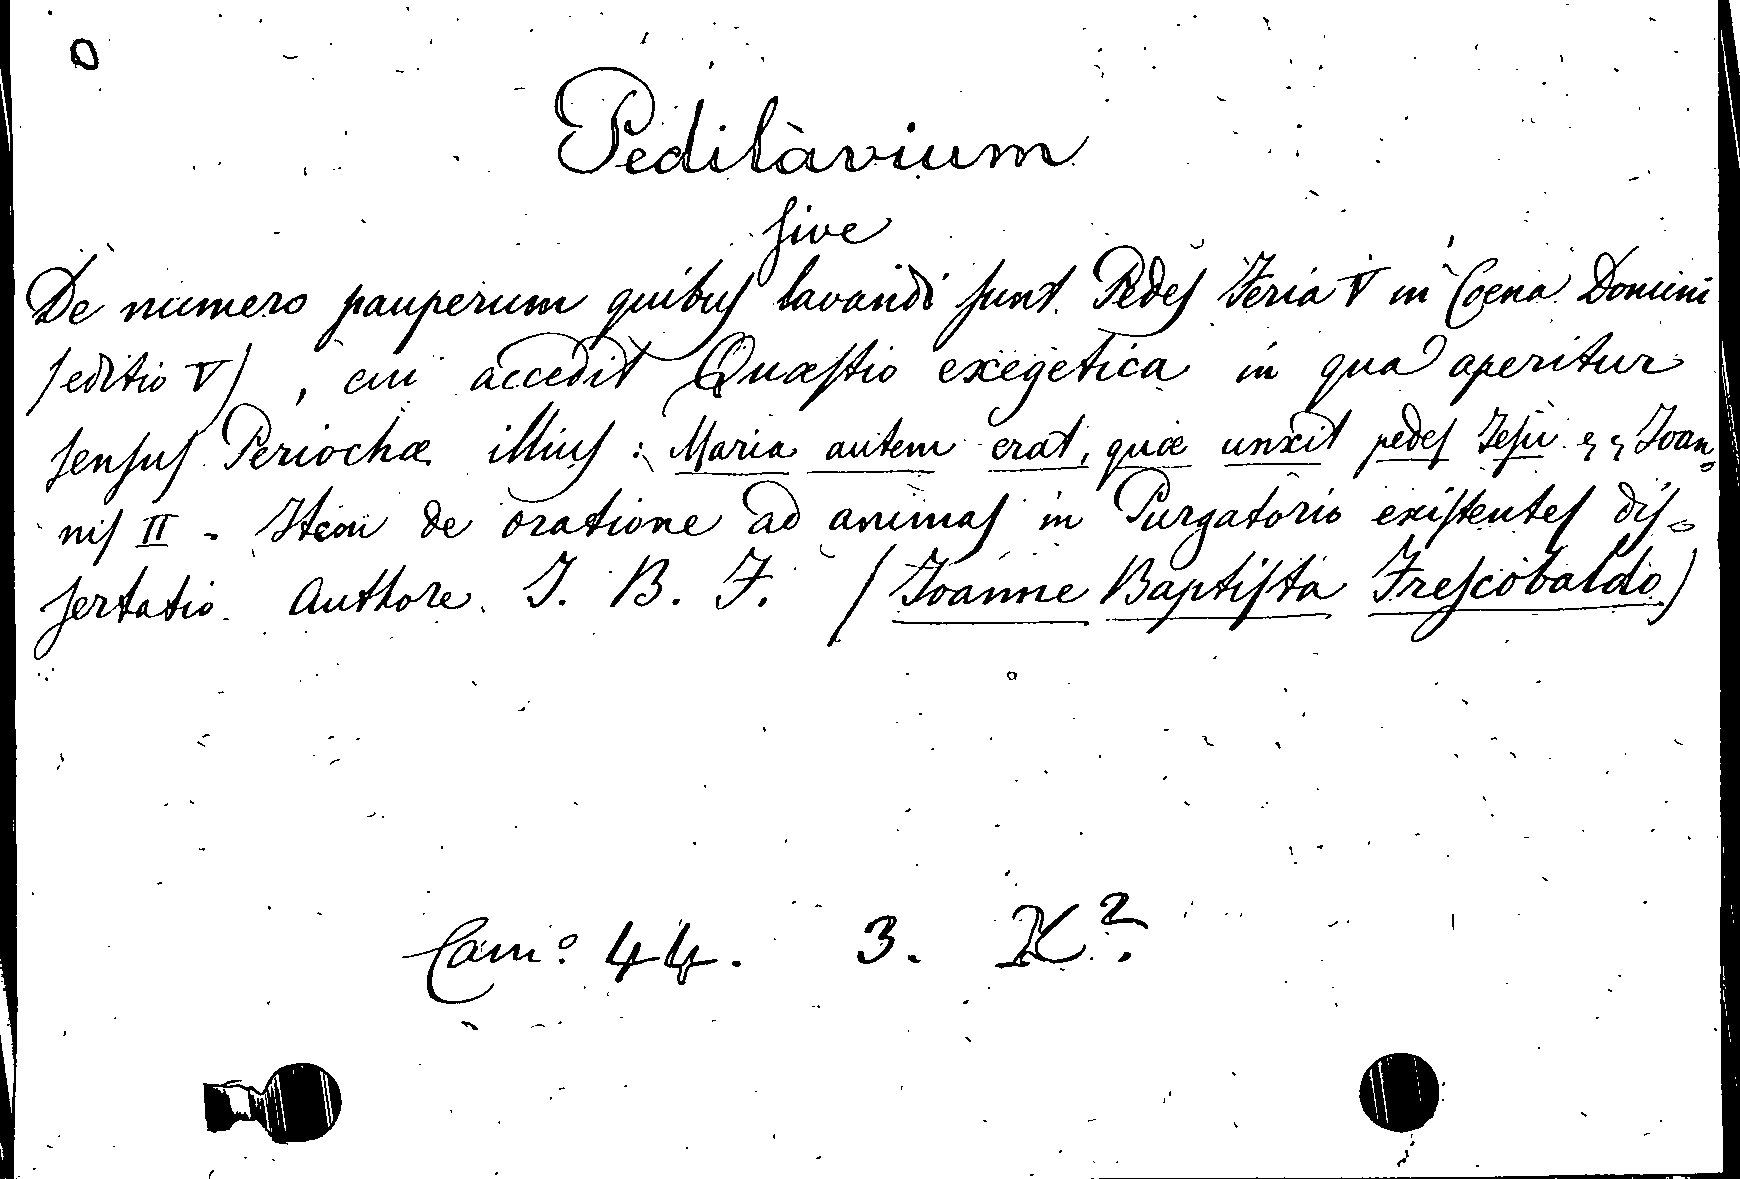 O
Pedilàvium
ſive
De numero pauperum quibuſ lavandi ſunt Pedeſ Feria V in Coena Domini
(editio V) , cui accedit Quæſtio exegetica in qua aperitur
ſenſuſ Periochæ illiuſ : Maria autem erat, quæ unxit pedeſ Jeſu &, &, Joan=
niſ II - Item de oratione ad animaſ in Purgatorio exiſtenteſ diſ=
ſertatio Authore J. B. F. (Joanne Baptiſta Freſcobaldo)
Cam.º 44. 3. K².